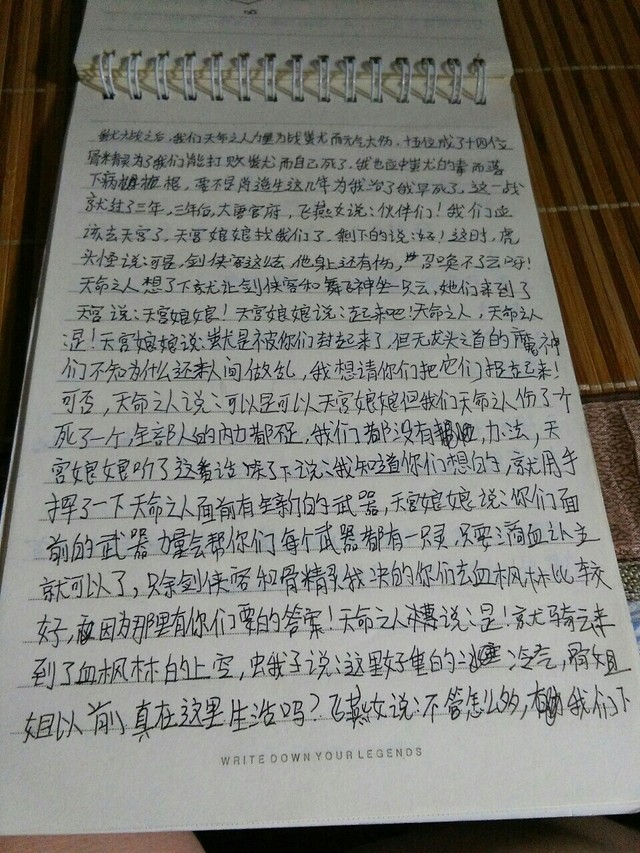 蚩尤大战之后,我们天命之人力量为战蚩尤而元气大伤,十五位成了十四位
骨精灵为了我们能打败蚩尤而自己死了,我也应中蚩尤的毒而落
下病根,要不是肖逍生这几年为我治了我早死了,这一战
就过了三年,三年后,大唐官府,飞燕女说:伙伴们!我们应
该去天宫了,天宫娘娘找我们了,剩下的说:好!这时,虎
头怪说:可是,剑侠客这么去,他身上还有伤,召唤不了云呀!
天命之人想了下就让剑侠客和舞飞神坐一只云,她们来到了
天宫说:天宫娘娘!天宫娘娘说:起来吧!天命之人,天命之人
:是!天宫娘娘说:蚩尤是被你们封起来了,但无尤头之首的魔神
们不知为什么还来人间做乱,我想请你们把它们捉起来!
可否,天命之人说:可以是可以天宫娘娘但我们天命之人伤了一个
死了一个,全部人的内力都不足,我们都没有办法,天
宫娘娘听了这番话,下说:我知道你们想的,就用手
挥了一下天命之人面前有全新的武器,天宫娘娘说:你们面
前的武器力量会帮你们每个武器都有一只灵,只要滴血认主
就可以了,只余剑侠客和骨精灵我决的你们去血枫林比较
好,因为那里有你们要的答案!天命之人说:是!就骑云来
到了血枫林的上空,虫我子说:这里好重的冷气,骨姐
姐以前真在这里生活吗?飞燕女说:不管怎么多,我们下
WRITE DOWN YOUR LEGENDS